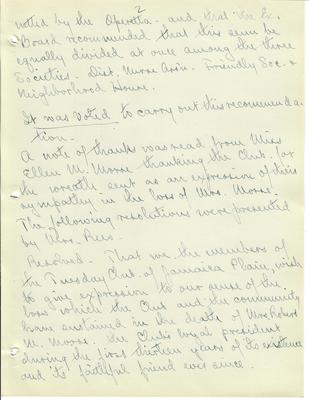 2
noted by the Operetta - and that the Ex.
Board recommended that this sum be
equally divided at once among the three
Societies - Dist. Nurse Ass'n. Friendly Soc. &
Neighborhood House.
It was voted to carry out this recommenda-
tion.
A note of thanks was read from Miss
Ellen M. Morse thanking the Club for
the wreath sent as an expression of their
sympathy in the loss of Mrs. Morse.
The following resolutions were presented
by Mrs. Rees.
Resolved - That we the members of
the Tuesday Club of Jamaica Plain, wish
to give expression to our sense of the
loss which the Club and the community
have sustained in the death of Mrs. Robert
M. Morse. the Club's loyal president
during the first thirteen years of its existence
and its faithful friend ever since.